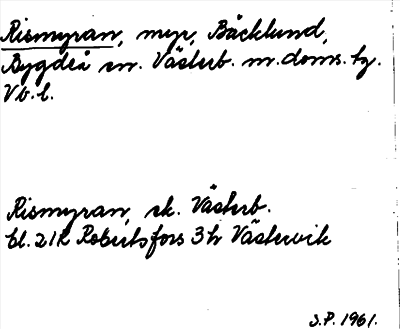 Rismyran, myr, Bäcklund,
Bygdeå sn. Västerb. m. doms. tg.
Vb. l.
Rismyran, sk. Västerb.
bl. 21K Robertsfors 3h Västervik
S.P. 1961.